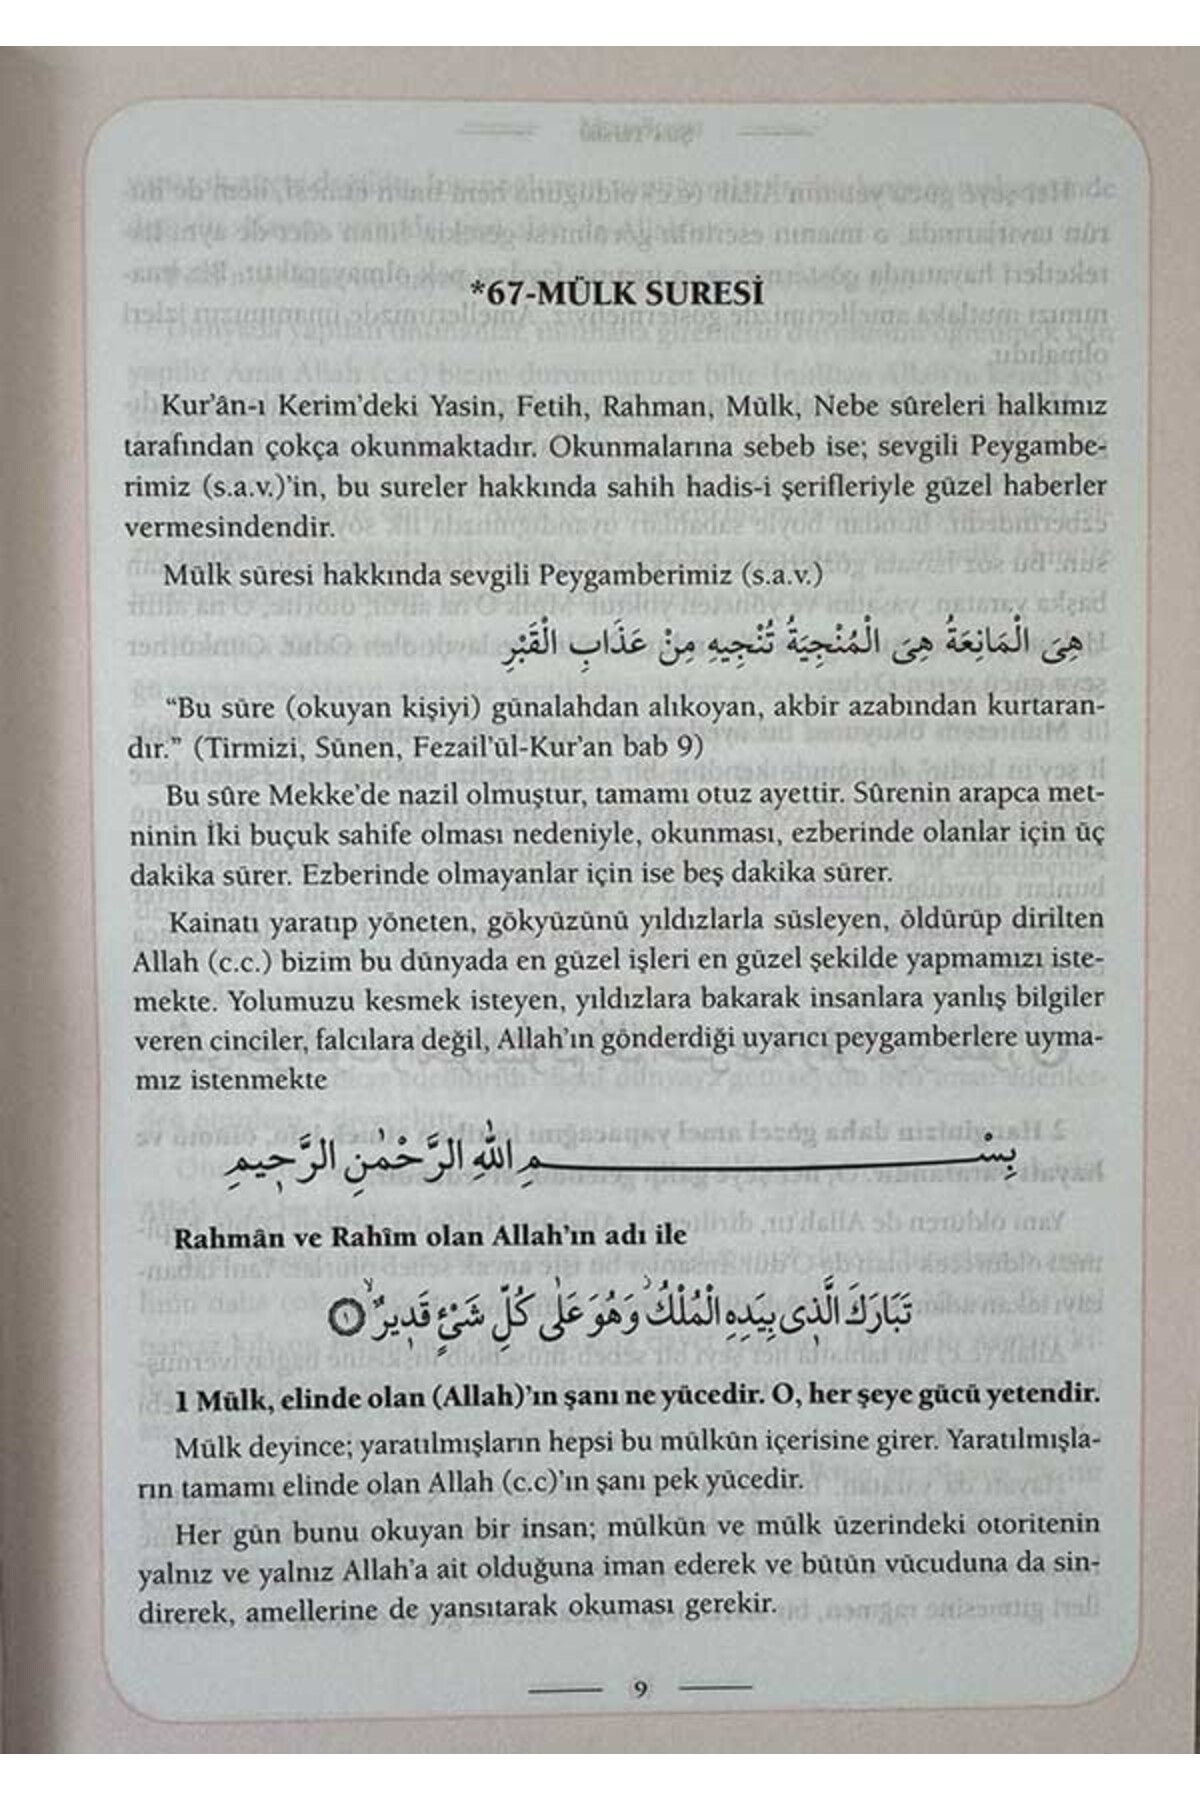 *67-MÜLK SURESİ
Kur'ân-ı Kerim'deki Yasin, Fetih, Rahman, Mülk, Nebe sûreleri halkımız
tarafından çokça okunmaktadır. Okunmalarına sebeb ise; sevgili Peygambe-
rimiz (s.a.v.)'in, bu sureler hakkında sahih hadis-i şerifleriyle güzel haberler
vermesindendir.
Mülk sûresi hakkında sevgili Peygamberimiz (s.a.v.)
هِىَ الْمَانِعَةُ هِىَ الْمُنْجِيَةُ تُنْجِيهِ مِنْ عَذَابِ الْقَبْرِ
“Bu sûre (okuyan kişiyi) günalahdan alıkoyan, akbir azabından kurtaran-
dır.” (Tirmizi, Sünen, Fezail'ül-Kur'an bab 9)
Bu sûre Mekke'de nazil olmuştur, tamamı otuz ayettir. Sûrenin arapca met-
ninin İki buçuk sahife olması nedeniyle, okunması, ezberinde olanlar için üç
dakika sürer. Ezberinde olmayanlar için ise beş dakika sürer.
Kainatı yaratıp yöneten, gökyüzünü yıldızlarla süsleyen, öldürüp dirilten
Allah (c.c.) bizim bu dünyada en güzel işleri en güzel şekilde yapmamızı iste-
mekte. Yolumuzu kesmek isteyen, yıldızlara bakarak insanlara yanlış bilgiler
veren cinciler, falcılara değil, Allah'ın gönderdiği uyarıcı peygamberlere uyma-
mız istenmekte
بِسْمِ اللّٰهِ الرَّحْمٰنِ الرَّحِيمِ
Rahmân ve Rahîm olan Allah'ın adı ile
تَبَارَكَ الَّذِى بِيَدِهِ الْمُلْكُ وَهُوَ عَلٰى كُلِّ شَىْءٍ قَدِيرٌ ۙ ﴿١﴾
1 Mülk, elinde olan (Allah)'ın şanı ne yücedir. O, her şeye gücü yetendir.
Mülk deyince; yaratılmışların hepsi bu mülkün içerisine girer. Yaratılmışla-
rın tamamı elinde olan Allah (c.c)'ın şanı pek yücedir.
Her gün bunu okuyan bir insan; mülkün ve mülk üzerindeki otoritenin
yalnız ve yalnız Allah'a ait olduğuna iman ederek ve bütün vücuduna da sin-
direrek, amellerine de yansıtarak okuması gerekir.
9